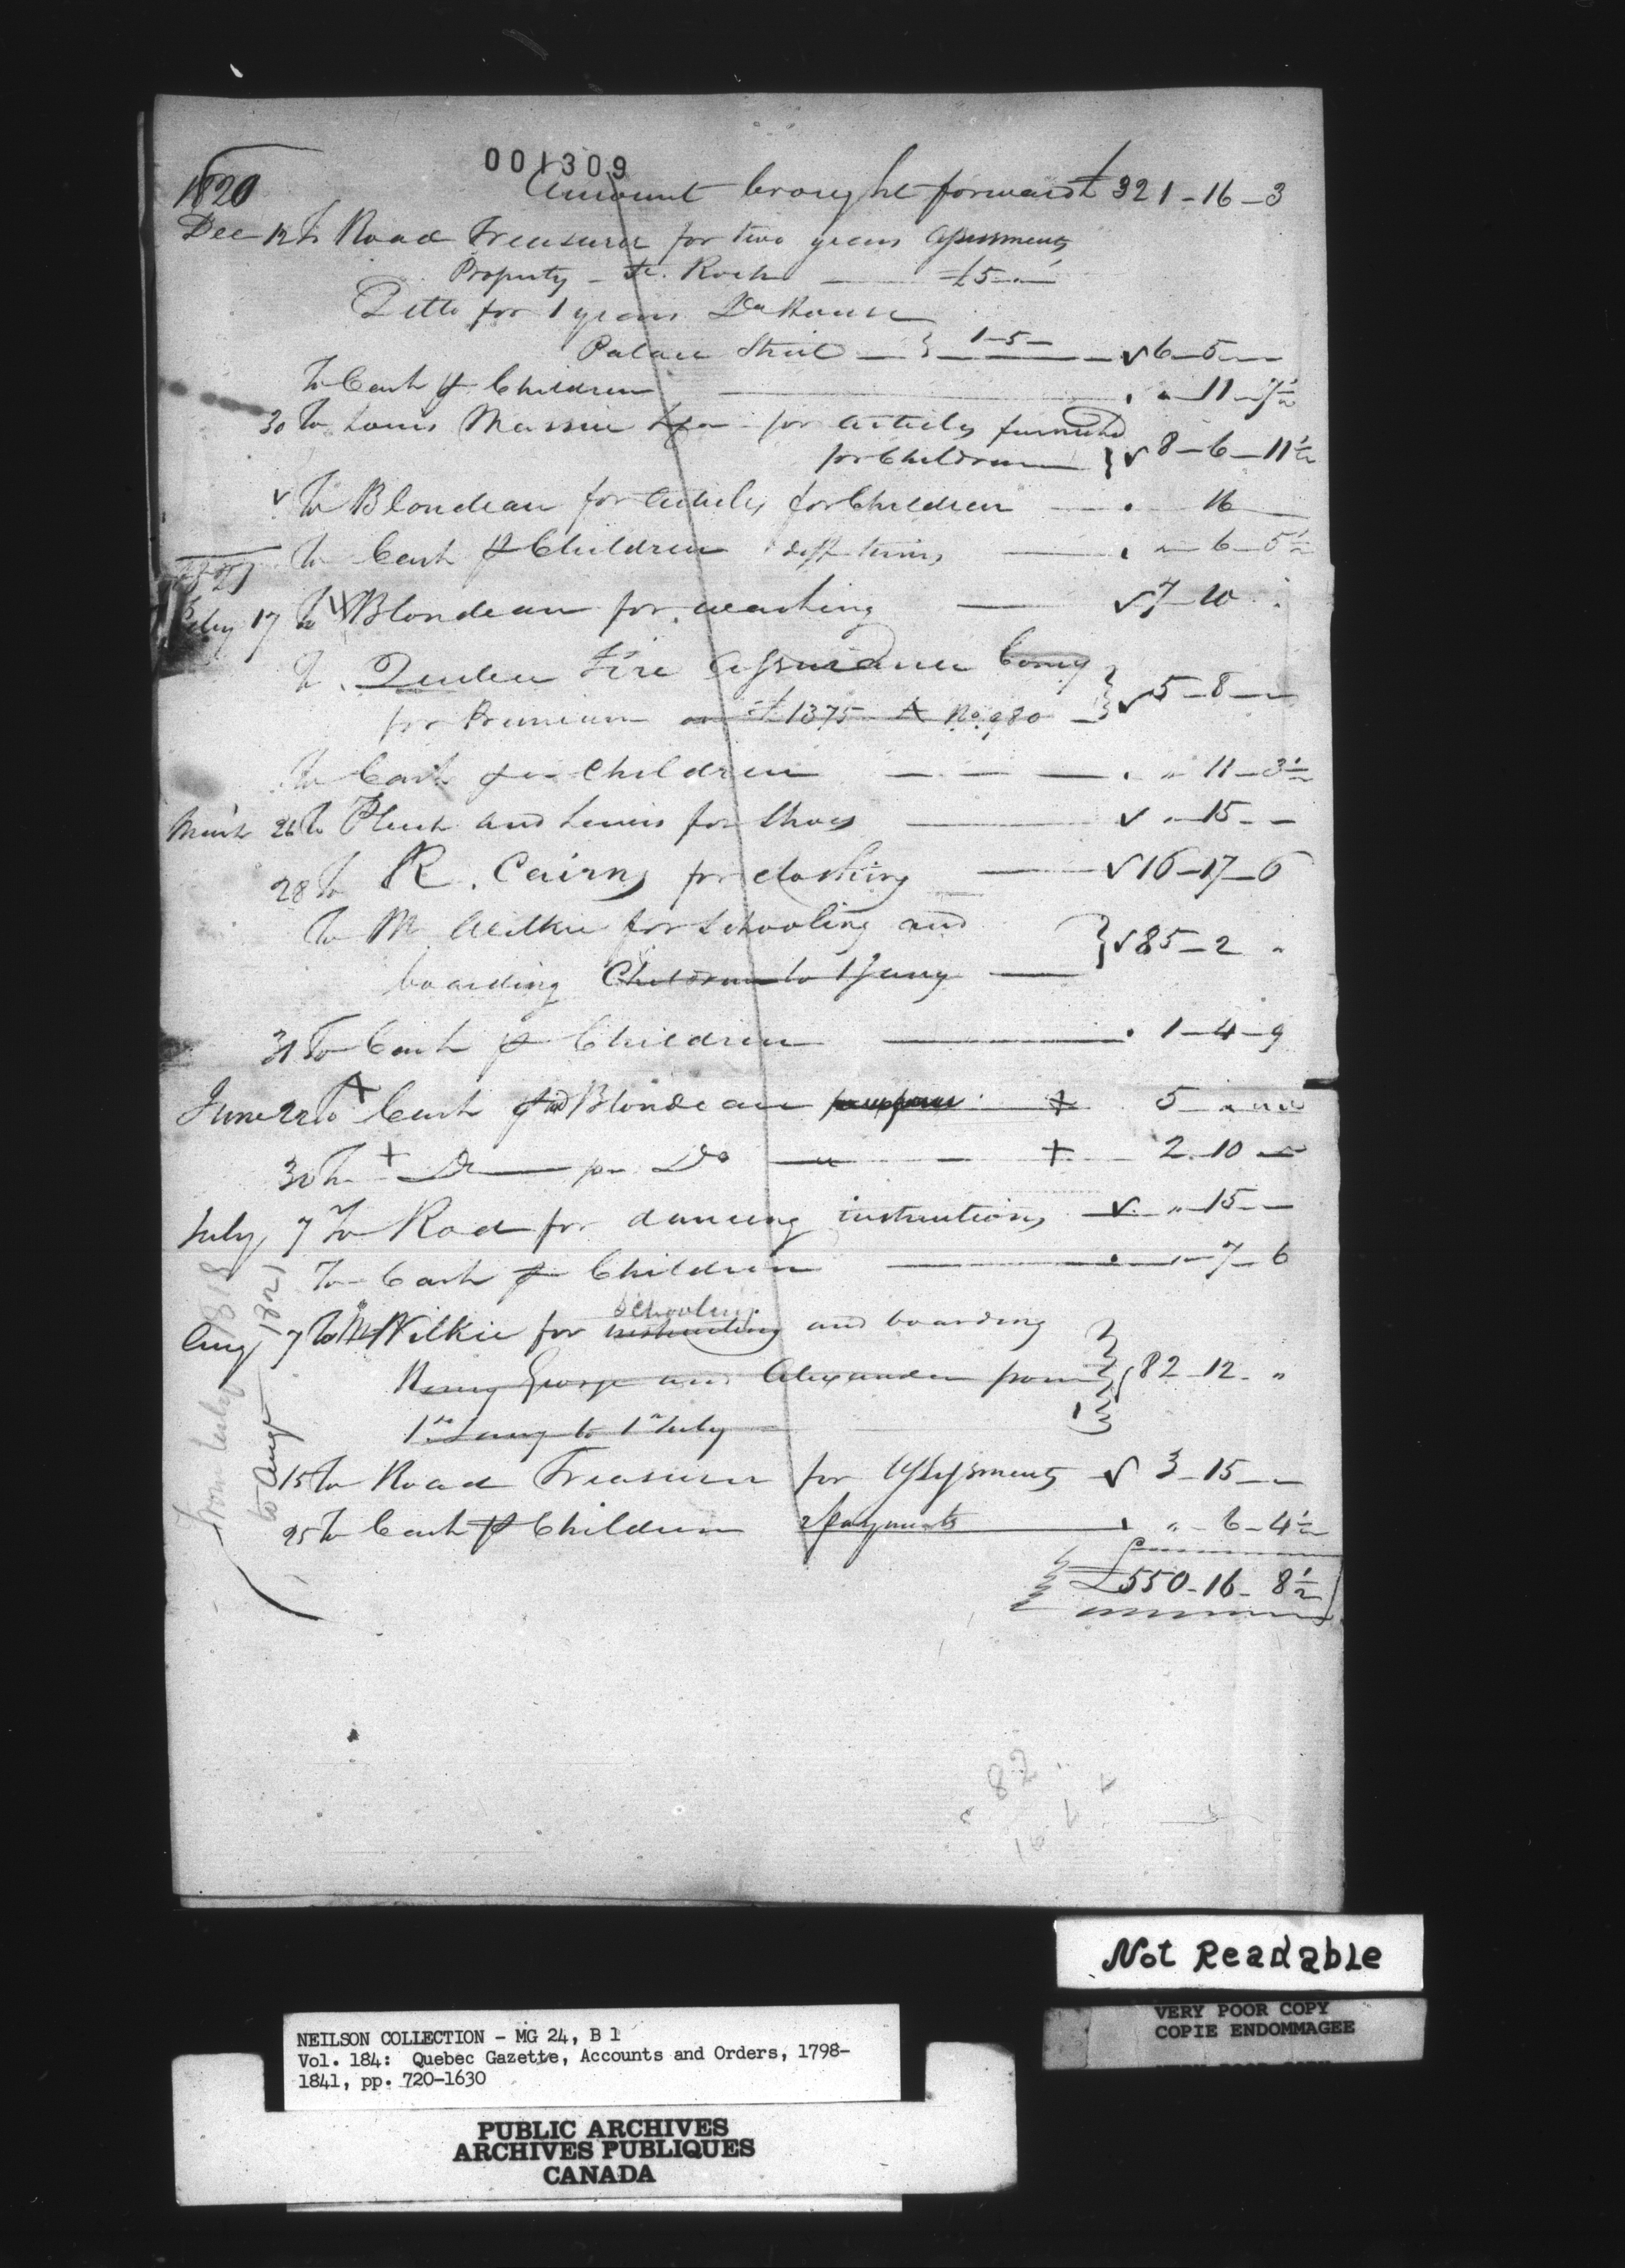 001309
1820
Amount brought forward £ 321-16-3
Dec 12 To Road Treasurer for two years Assessments
Property - St. Rock £5
Ditto for 1 years Do House
Palace Street 1-5- 6-5
To Cash pr Children 11-7½
30 To Louis Massue for articles furnished
for Children 8-6-11½
To Blondeau for articles for Children 16
To Cash pr Children diff times 6-5½
1821
Feby 17 To Blondeau for washing 7-10
To Quebec Fire Assurance Comy
for Premium on £1375 A No. 980 5-8
To Cash for Children 11-3½
March 26 To and Lewis for Shoes 15
28 To R. Cairns for clothing 16-17-6
To Mr Wilkie for Schooling and
boarding Children to 1 Jany 85-2
31 To Cash pr Children 1-4-9
June 22 To Cash pd Blondeau 5
30 To Do pr Do 2-10
July 7 To Rod for dancing instructions 15
To Cash pr Children 7-6
Schooling
Aug 7 To Mr Wilkie for instructing and boarding
Henry George and Alexander from 82-12
1st Jany to 1st July
15 To Road Treasurer for Assessments 3-15
25 To Cash pr Children 2 payments 6-4½
£550-16-8½
from July 1818
to Aug 1821
82
16
Not Readable
VERY POOR COPY
COPIE ENDOMMAGEE
NEILSON COLLECTION - MG 24, B 1
Vol. 184: Quebec Gazette, Accounts and Orders, 1798-
1841, pp. 720-1630
PUBLIC ARCHIVES
ARCHIVES PUBLIQUES
CANADA